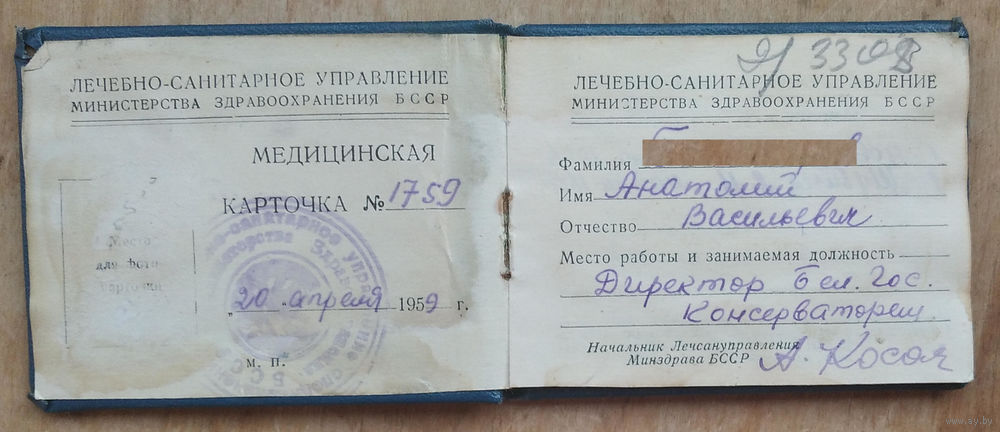 ЛЕЧЕБНО-САНИТАРНОЕ УПРАВЛЕНИЕ
МИНИСТЕРСТВА ЗДРАВООХРАНЕНИЯ БССР
МЕДИЦИНСКАЯ
КАРТОЧКА № 1759
Место
для фото
карточки
"20" апреля 1959 г.
М. П.
3308
ЛЕЧЕБНО-САНИТАРНОЕ УПРАВЛЕНИЕ
МИНИСТЕРСТВА ЗДРАВООХРАНЕНИЯ БССР
Фамилия
Имя Анатолий
Отчество Васильевич
Место работы и занимаемая должность
Директор Бел. Гос.
Консерватории
Начальник Лечсануправления
Минздрава БССР
www.ay.by